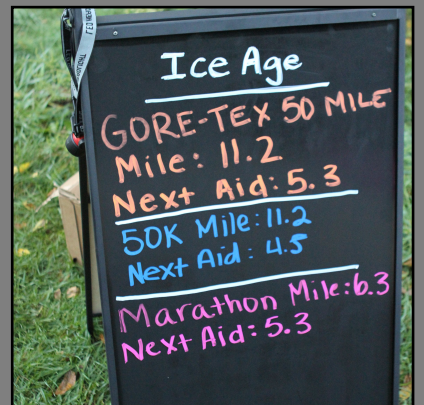 Ice Age
GORE-TEX 50 MILE
Mile: 11.2
Next Aid: 5.3
50K Mile: 11.2
Next Aid: 4.5
Marathon Mile: 6.3
Next Aid: 5.3